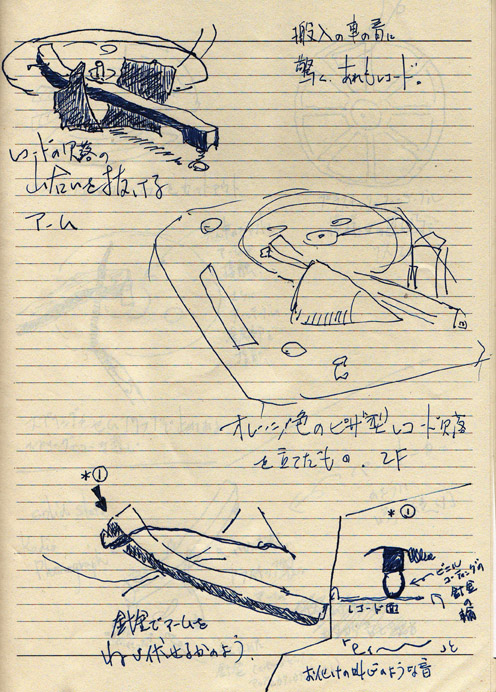 搬入の車の音に
驚く、あれもレコード。
レコードの欠落の
山あいを抜ける
アーム
オレンジ色のピザ型レコード欠落
を立てたもの。2F
*①
*①
ビニル
コーティングの
針金の
輪
レコード面
針金でアームを
ねじ伏せるかのよう。
と
お化けの叫びのような音